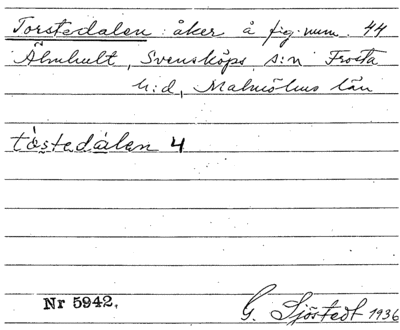 Torstedalen : åker å fig. num. 44
Älmhult, Svensköps s:n Frosta
h:d, Malmöhus län
tòstedàlen 4
Nr 5942.
G. Sjöstedt 1936